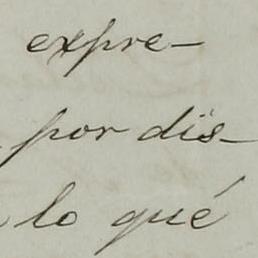 expre-
por dis-
lo qué